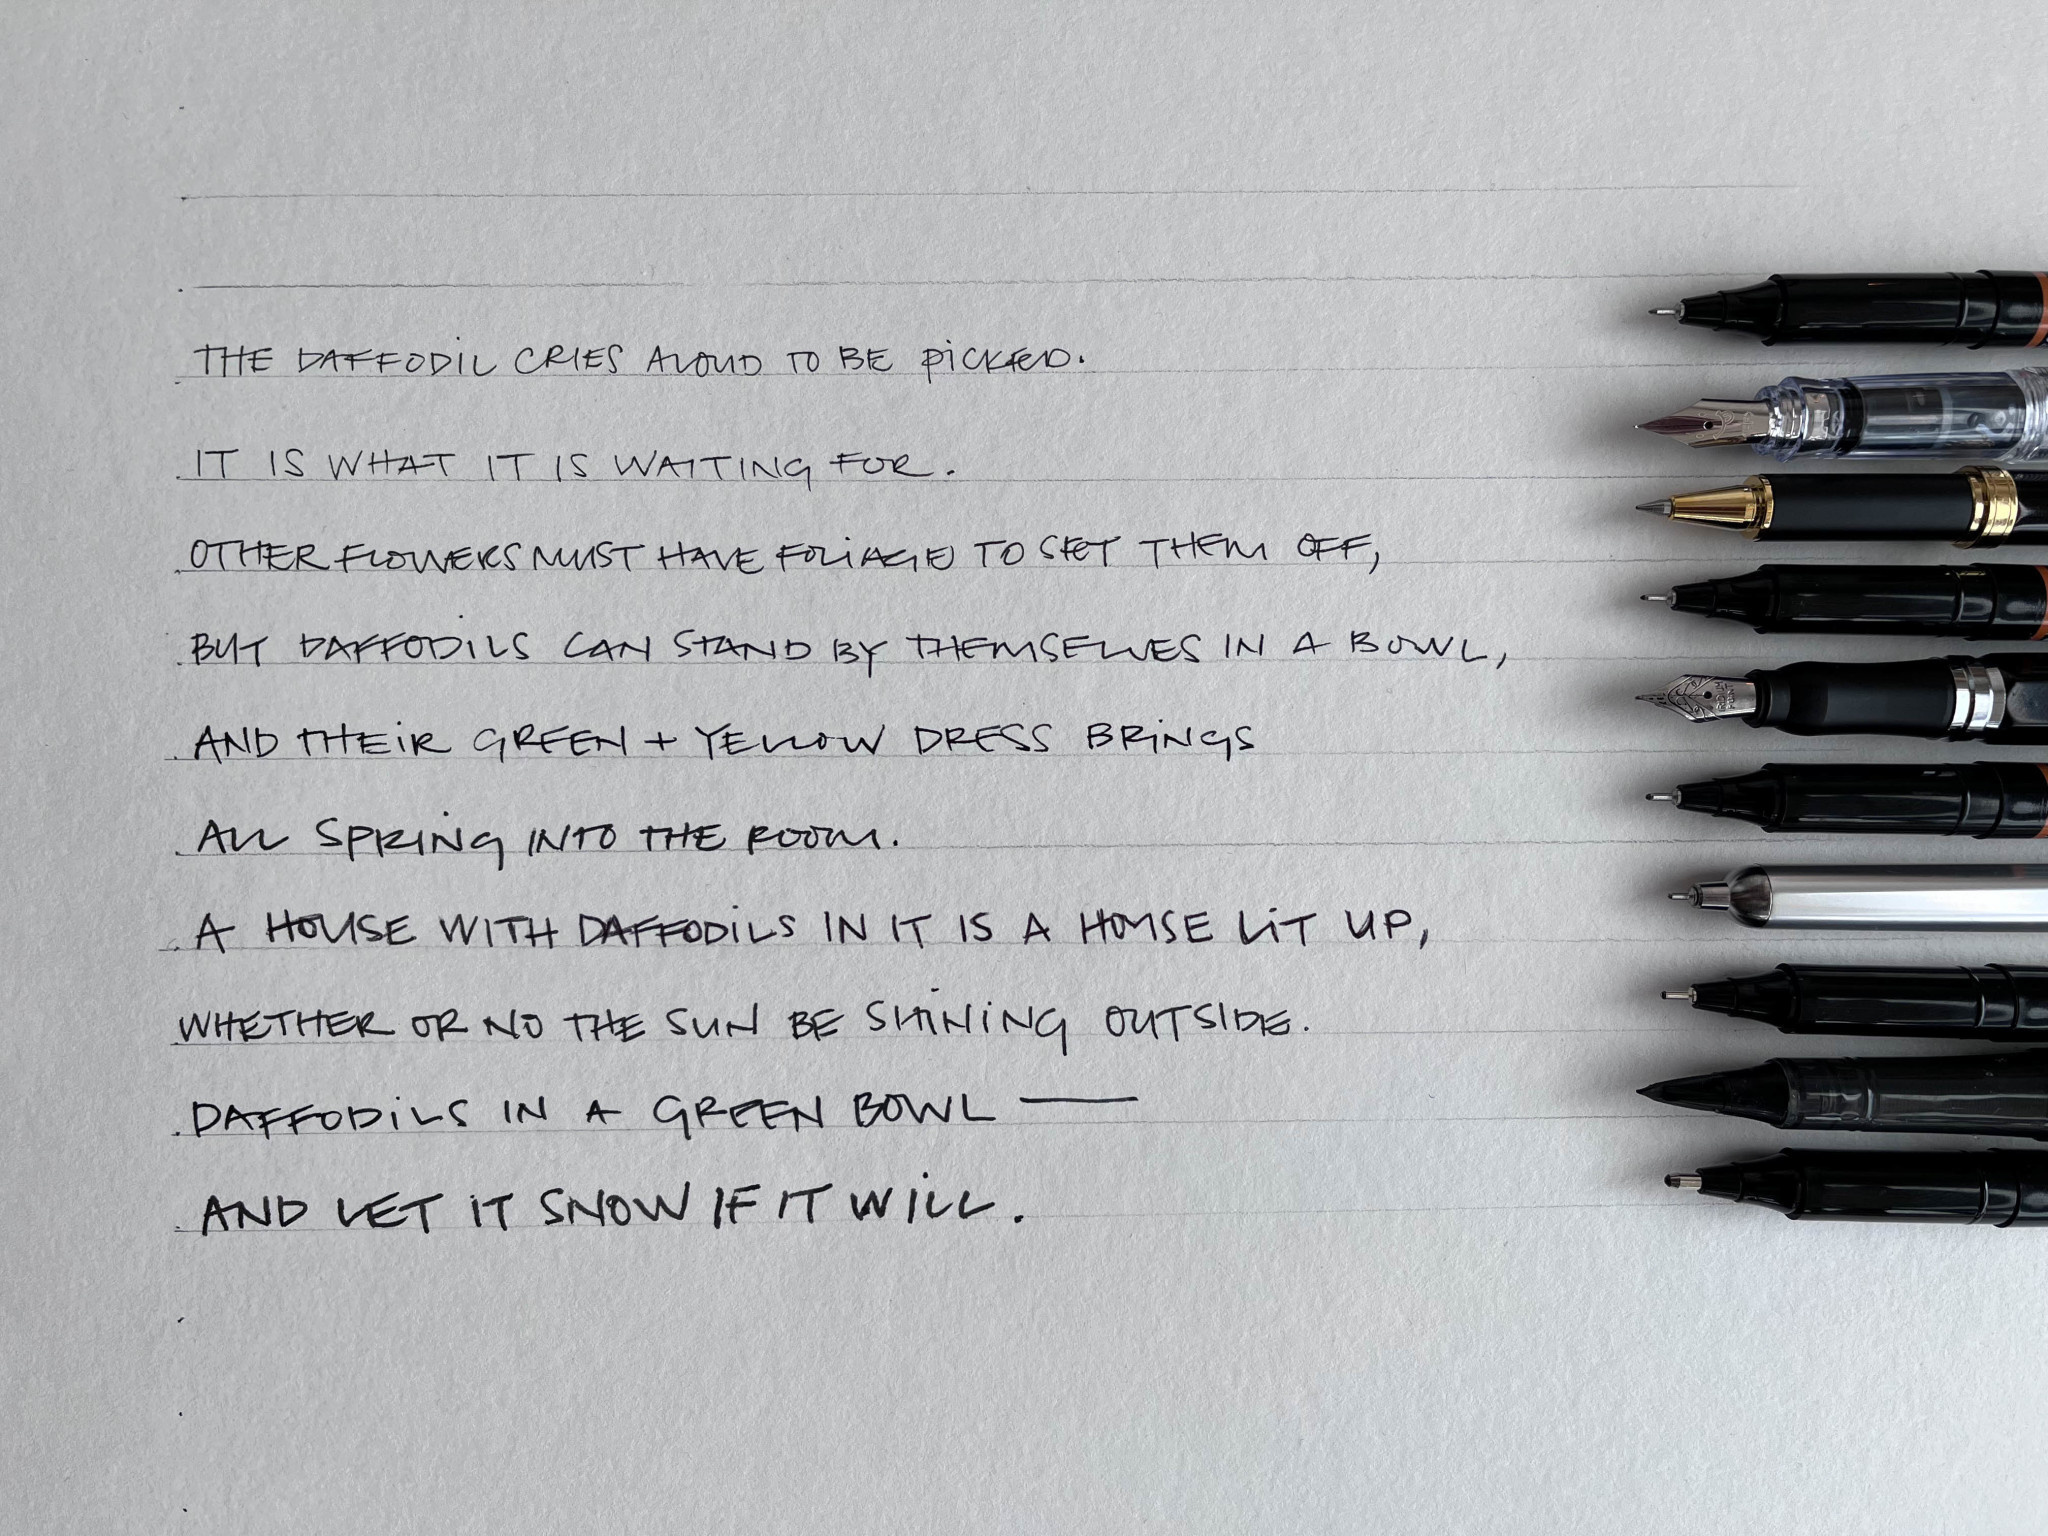 THE DAFFODIL CRIES ALOUD TO BE PICKED.
IT IS WHAT IT IS WAITING FOR.
OTHER FLOWERS MUST HAVE FOLIAGE TO SET THEM OFF,
BUT DAFFODILS CAN STAND BY THEMSELVES IN A BOWL,
AND THEIR GREEN + YELLOW DRESS BRINGS
ALL SPRING INTO THE ROOM.
A HOUSE WITH DAFFODILS IN IT IS A HOUSE LIT UP,
WHETHER OR NO THE SUN BE SHINING OUTSIDE.
DAFFODILS IN A GREEN BOWL —
AND LET IT SNOW IF IT WILL.